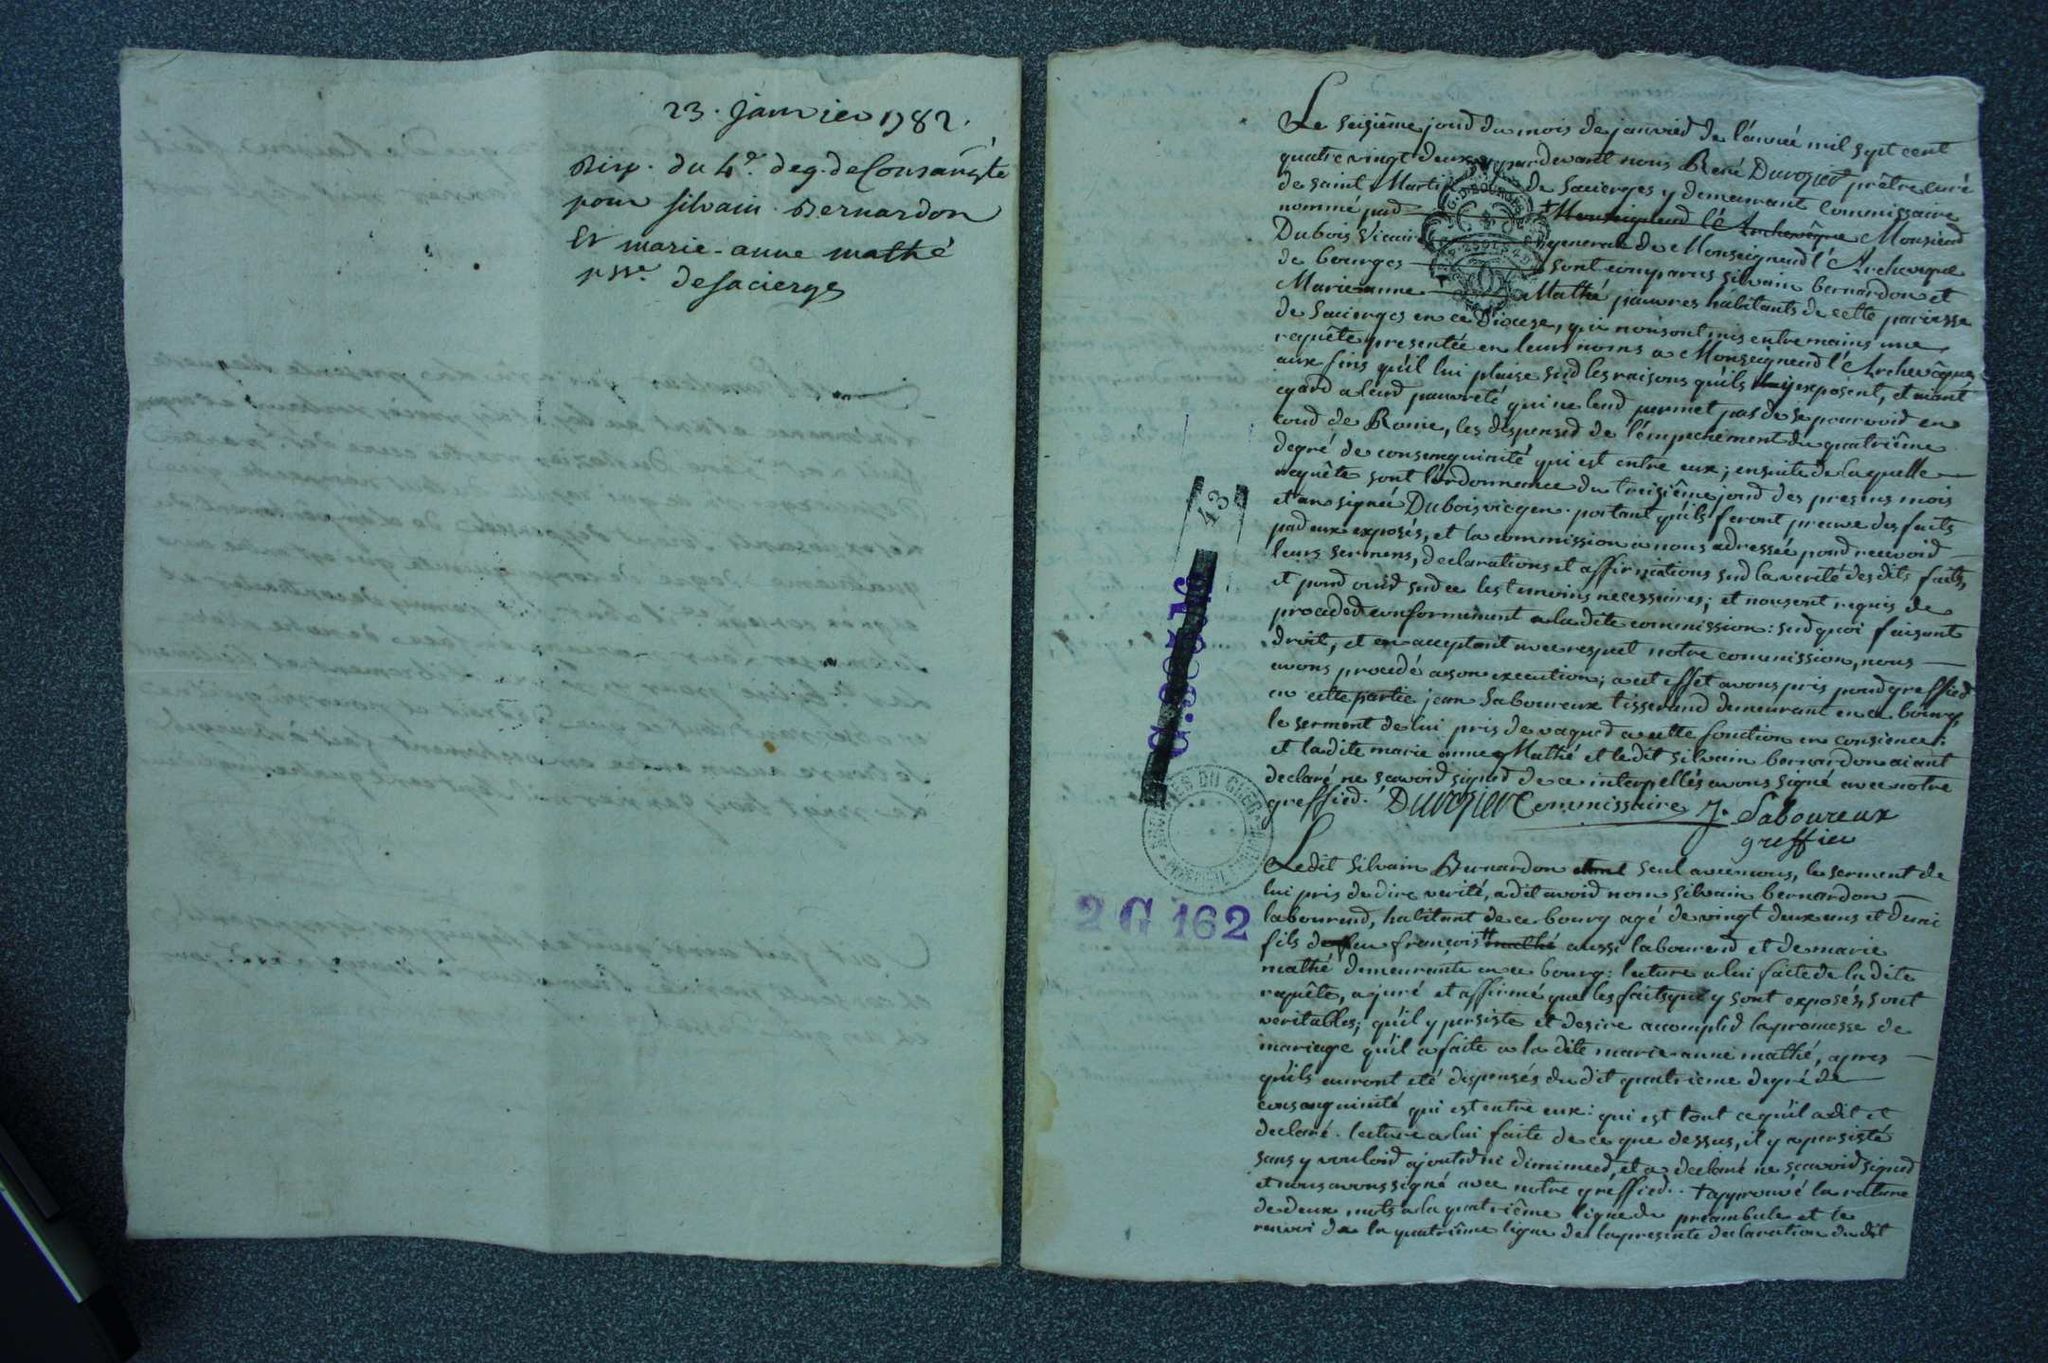 23. janvier 1782.
Disp. du 4e. deg. de Consangté
pour silvain Bernardon
Et marie-anne mathé
psse. de sacierges
Le seisième jour du mois de janvier de l'année mil sept cent
quatre vingt deux, pardevant nous René Duvozier prêtre curé
de saint Martin de Sacierges y demeurant Commissaire
nommé par Monseigneur l'Archevêque Monsieur
Dubois Vicaire general de Monseigneur l'Archevêque
de bourges sont comparus silvain bernardon et
Marie anne Mathé pauvres habitants de cette paroisse
de Sacierges en ce Diocese, qui nous ont mis entre mains une
requête presentée en leurs noms a Monseigneur l'Archevêque
aux fins qu'il lui plaise sur les raisons qu'ils y exposent, et aiant
egard a leur pauvreté qui ne leur permet pas de se pourvoir en
cour de Rome, les dispenser de l'empechement du quatrième
degré de consanguinité qui est entré eux; ensuite de laquelle
requête sont l'ordonnance du treisième jour des presens mois
et an signée Dubois vic gen. portant qu'ils feront preuve des faits
par eux exposés, et la commission a nous adressée pour recevoir
leurs sermens, declarations et affirmations sur la verité des dits faits,
et pour ouir sur ce les temoins necessaires; et nous ont requis de
proceder conformement a la dite commission: sur quoi faisant
droit, et en acceptant avec respect notre commission, nous
avons procédé a son execution; a cet effet avons pris pour greffier
en cette partie jean Laboureux tisserand demeurant en ce bourg,
le serment de lui pris de vaquer a cette fonction en consience:
et la dite marie anne Mathé et le dit silvain bernardon aiant
declaré ne scavoir signer de ce interpellés avons signé avec notre
greffier. Duvozier Commissaire J. Laboureux
greffier
43
G. 362
ARCHIVES DU CHER
2 G 162
Ledit Silvain Bernardon etant seul avec nous, le serment de
lui pris de dire verité, a dit avoir nom silvain bernardon
laboureur, habitant de ce bourg agé de vingt deux ans et demi
fils de feu françois mathé aussi laboureur et de marie
mathé demeurante en ce bourg: lecture a lui faite de la dite
requête, a juré et affirmé que les faits qui y sont exposés, sont
veritables; qu'il y persiste et desire accomplir la promesse de
mariage qu'il a faite a la dite marie-anne mathé, apres
qu'ils auront eté dispensés du dit quatrieme degré de
consanguinité qui est entre eux: qui est tout ce qu'il a dit et
declaré. lecture a lui faite de ce que dessus, il y a persisté
sans y vouloir ajouter ni diminuer, et a declaré ne scavoir signer
et nous avons signé avec notre greffier. + approuvé la rature
de deux mots a la quatrième ligne du préambule et le
renvoi de la quatrième ligne de la presente declaration du dit